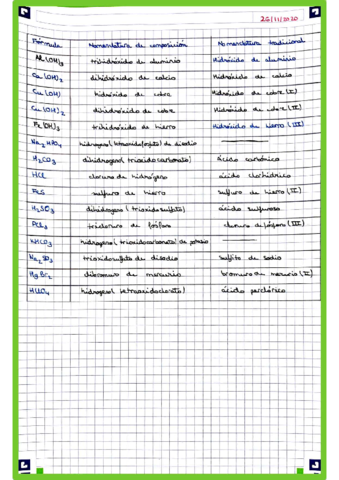 26/11/2020
Fórmula Nomenclatura de composición Nomenclatura tradicional
Al(OH)3 trihidróxido de aluminio Hidróxido de aluminio
Ca(OH)2 dihidróxido de calcio Hidróxido de calcio
Cu(OH) hidróxido de cobre Hidróxido de cobre (I)
Cu(OH)2 dihidróxido de cobre Hidróxido de cobre (II)
Fe(OH)3 trihidróxido de hierro Hidróxido de hierro (III)
Na2HPO4 hidrogeno(tetraoxidofosfato) de disodio
H2CO3 dihidrogeno(trioxidocarbonato) ácido carbónico
HCl cloruro de hidrógeno ácido clorhídrico
FeS sulfuro de hierro sulfuro de hierro (II)
H2SO3 dihidrogeno(trioxidosulfato) ácido sulfuroso
PCl3 tricloruro de fósforo cloruro de fósforo (III)
KHCO3 hidrogeno(trioxidocarbonato) de potasio
Na2SO3 trioxidosulfato de disodio sulfito de sodio
HgBr2 dibromuro de mercurio bromuro de mercurio (II)
HClO4 hidrogeno(tetraoxidoclorato) ácido perclórico